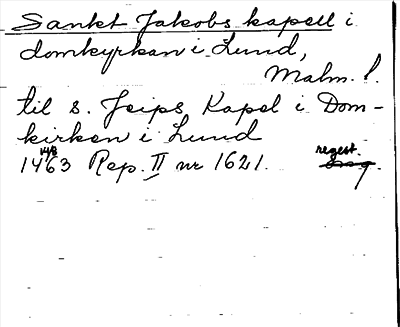 Sankt Jakobs kapell i
domkyrkan i Lund,
Malm. l.
til s. Jeips Kapel i Dom-
kirken i Lund
14/8
1463 Rep. II nr 1621. regest.